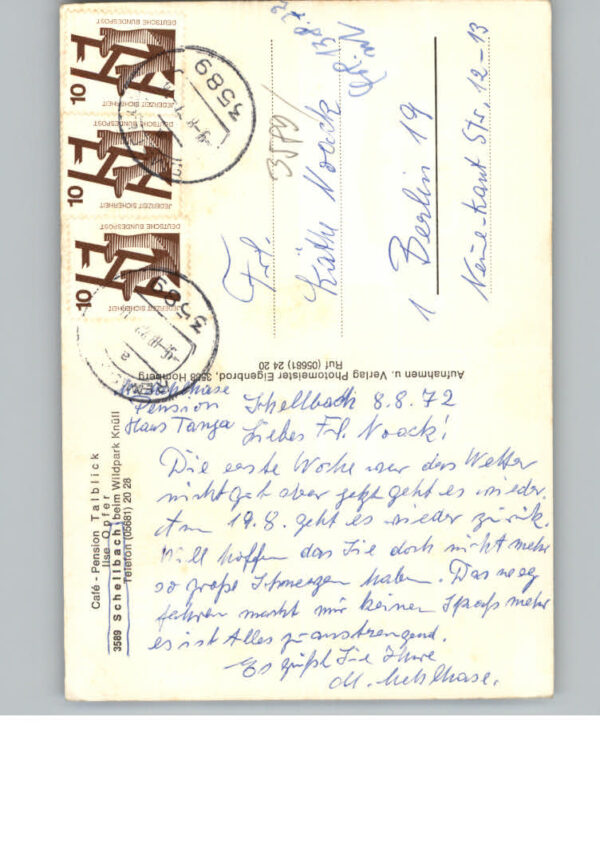 Mehlhase
Pension
Haus Tanja
Schellbach 8.8.72
Liebes Frl. Noack!
Die erste Woche war das Wetter
nicht gut aber jetzt geht es wieder.
Am 19.8. geht es wieder zurük.
Will hoffen das Sie doch nicht mehr
so große Schmerzen haben. Das weg
fahren macht mir keinen Spaß mehr
es ist Alles zu anstrengend.
Es grüßt Sie Ihre
M. Mehlhase.
Café - Pension Talblick
Ilse Opfer
3589 Schellbach, beim Wildpark Knüll
Telefon (05681) 20 28
Aufnahmen u. Verlag Photomeister Eigenbrod, 3588 Homberg
Ruf (05681) 24 20
Frl.
Käthe Noack
1 Berlin 19
Neue-Kant Str. 12-13
3589/
DEUTSCHE BUNDESPOST
JEDERZEIT SICHERHEIT
10
DEUTSCHE BUNDESPOST
JEDERZEIT SICHERHEIT
10
DEUTSCHE BUNDESPOST
JEDERZEIT SICHERHEIT
10
3589
3589
a